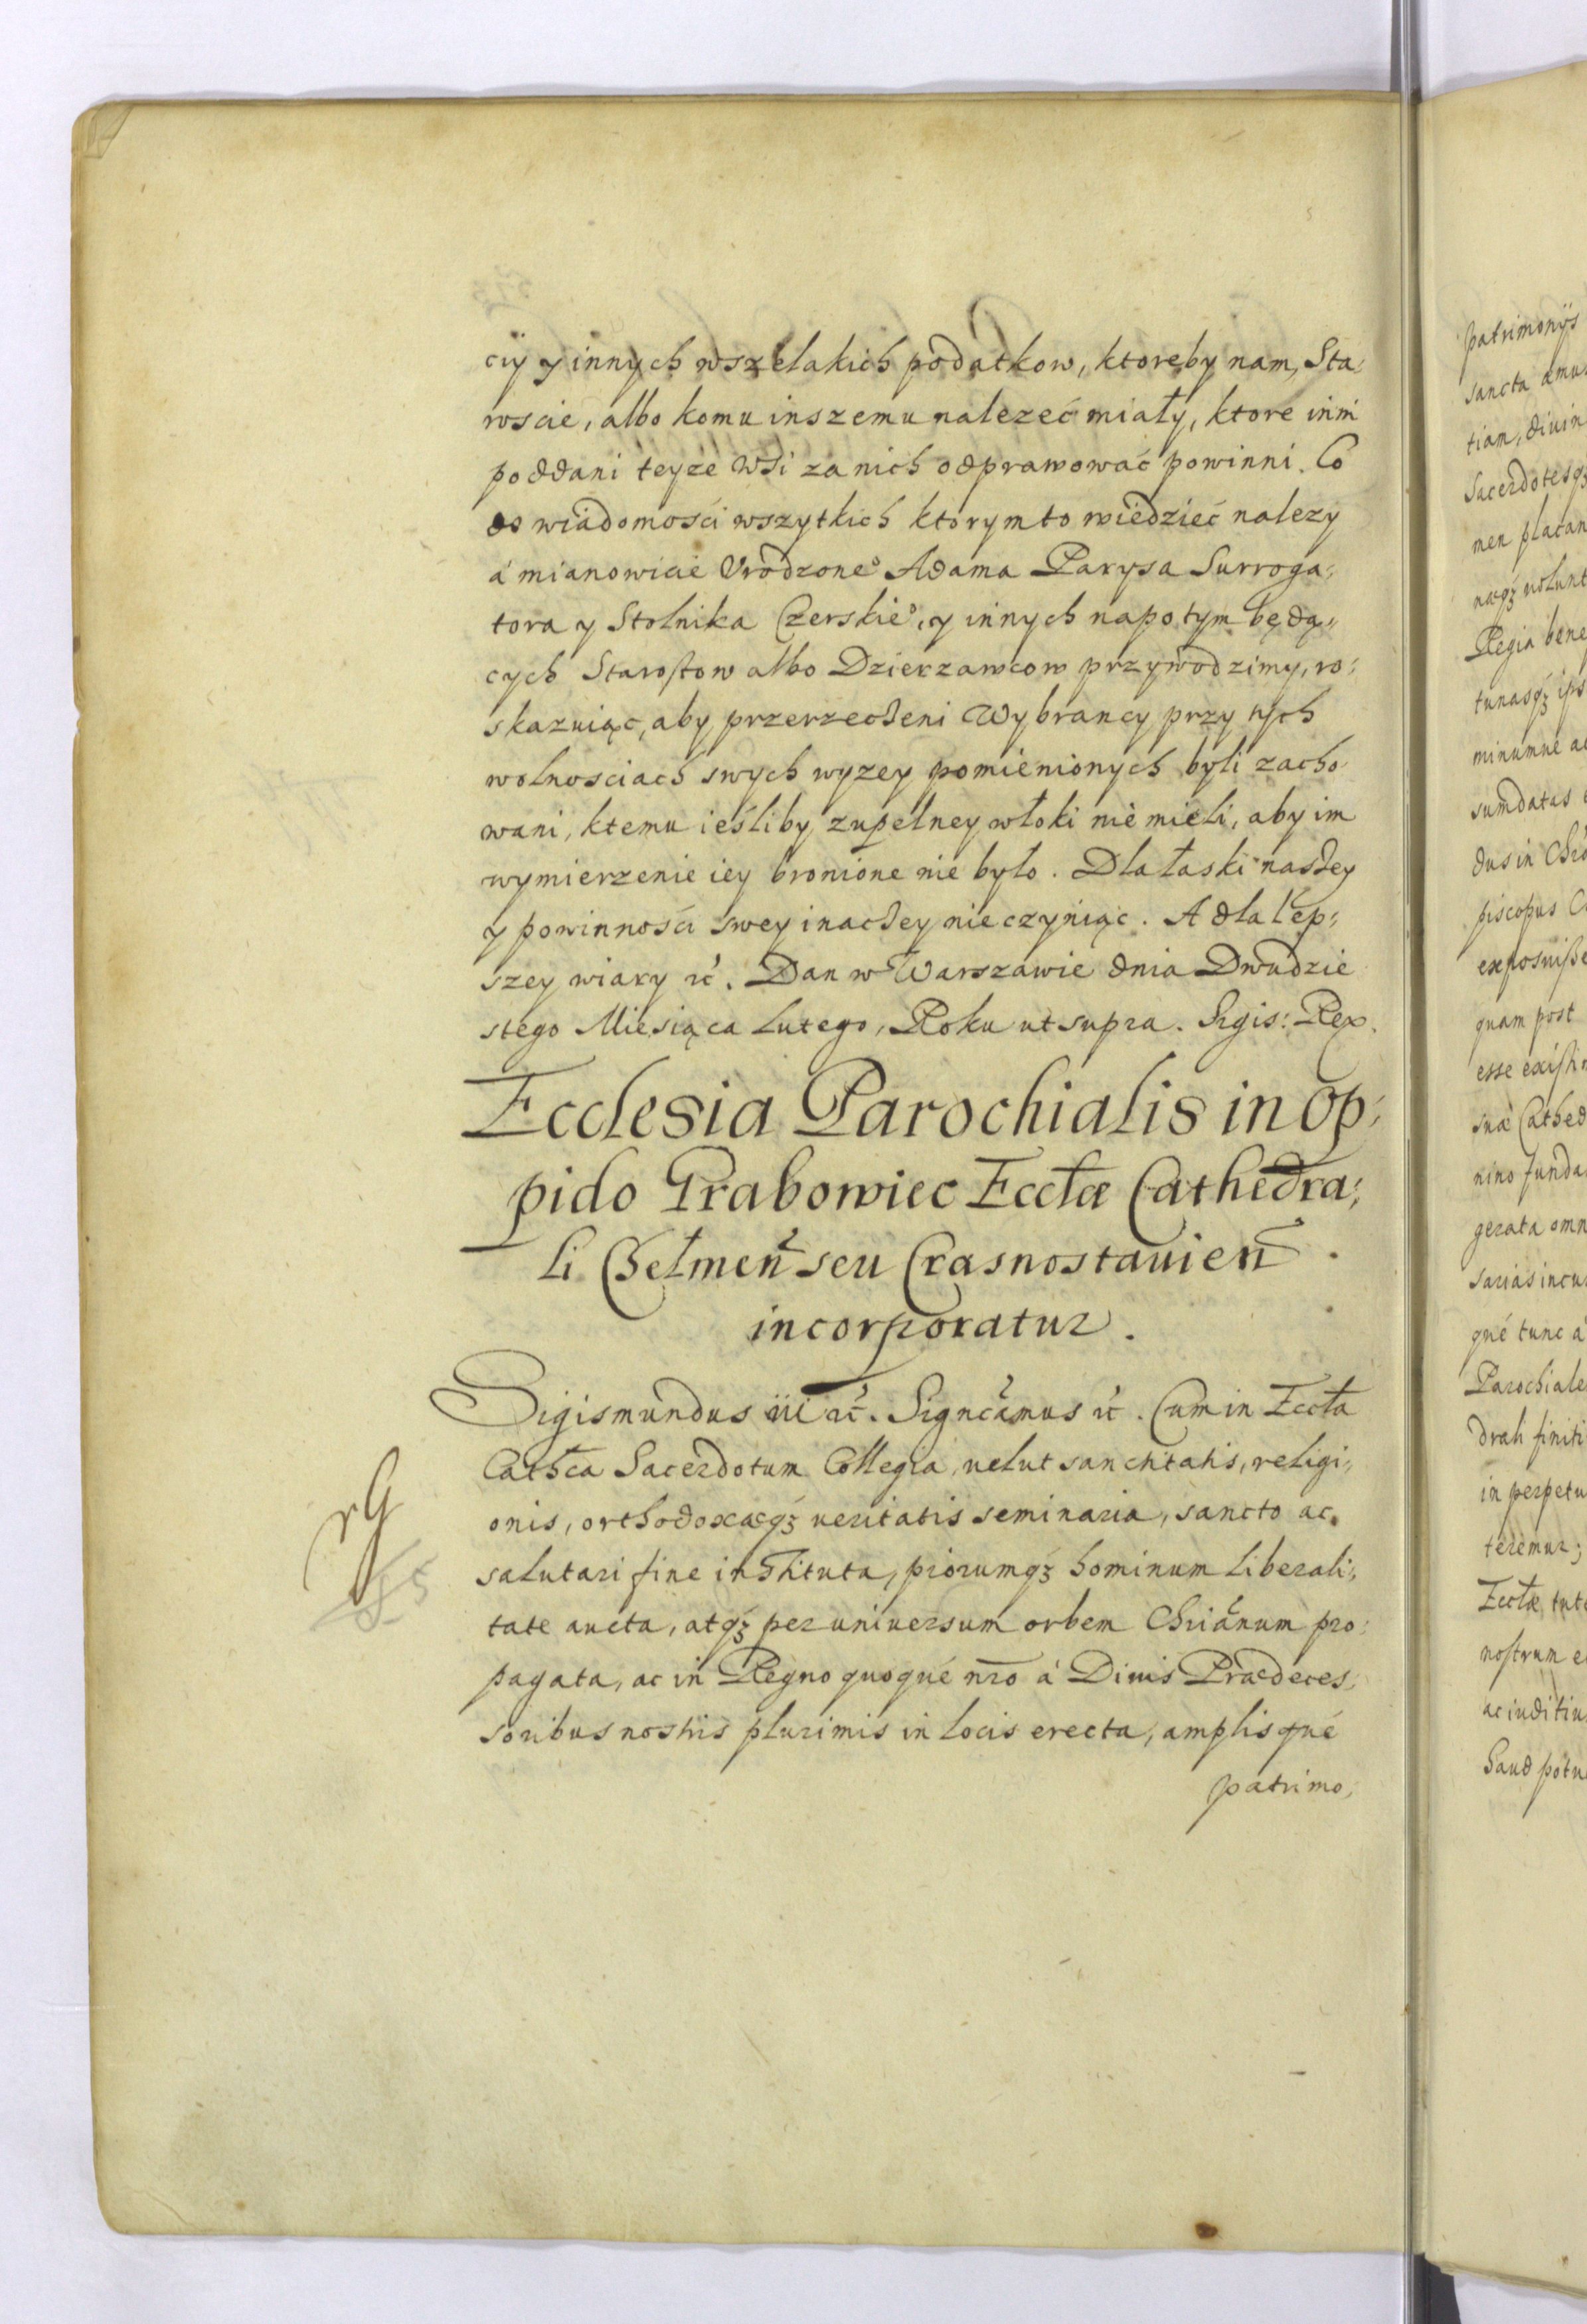 cÿ y innych wszelakich podatkow, ktoreby nam, Sta:
roscie, albo komu inszemu nalezeć miały, ktore inni
poddani teyze wsi za nich odprawować powinni. Co
do wiadomości wszytkich ktorym to wiedzieć nalezy
á mianowicie Urodzone° Adama Parysa Surroga:
tora y Stolnika Czerskie°, y innych napotym będą:
cych Starostow albo Dzierzawcow przywodzimy, ro:
skazuiąc, aby przerzeczeni Wybrancy przy tych
wolnosciach swych wyzey pomienionych byli zacho
wani, ktemu ieśliby zupełney włoki nie mieli, aby im
wymierzenie iey bronione nie było. Dla łaski naszey
y powinności swey inaczey nie czyniąc. A dla lep:
szey wiary rć. Dan w Warszawie dnia Dwudzie
stego Miesiąca Lutego, Roku ut supra. Sigis: Rex.
Ecclesia Parochialis in Op:
pido Grabowiec Eccłæ Cathedra:
li Chełmeñ seu Crasnostauieñ
incorporatur.
Sigismundus iii rć. Signcámus rć. Cum in Eccła
Cathca Sacerdotum Collegia, uelut sanctitatis, religi:
onis, orthodoxæqȝ ueritatis seminaria, sancto ac
salutari fine instituta, piorumqȝ hominum liberali:
tate aucta, atqȝ per uniuersum orbem Chriánum pro:
pagata, ac in Regno quoqué nr̃o á Diuis Prædeces:
soribus nostris plurimis in locis erecta, amplisqué
patrimo:
patrimonÿs
sancta
tiam, diuin
Sacerdotesqȝ
men placan
uolunt
Regia bene
tunasqȝ ips
minumue
sumdatus
dus in Chr
piscopus
exposuiße
quam post
esse existi
suæ Cathed
nino funda
gerata omn
sarias incu
qué tunc á
Parochiale
drali finiti
in perpetu
teremur;
Eccłæ tut
nostrum e
ac iuditiu
haud potu